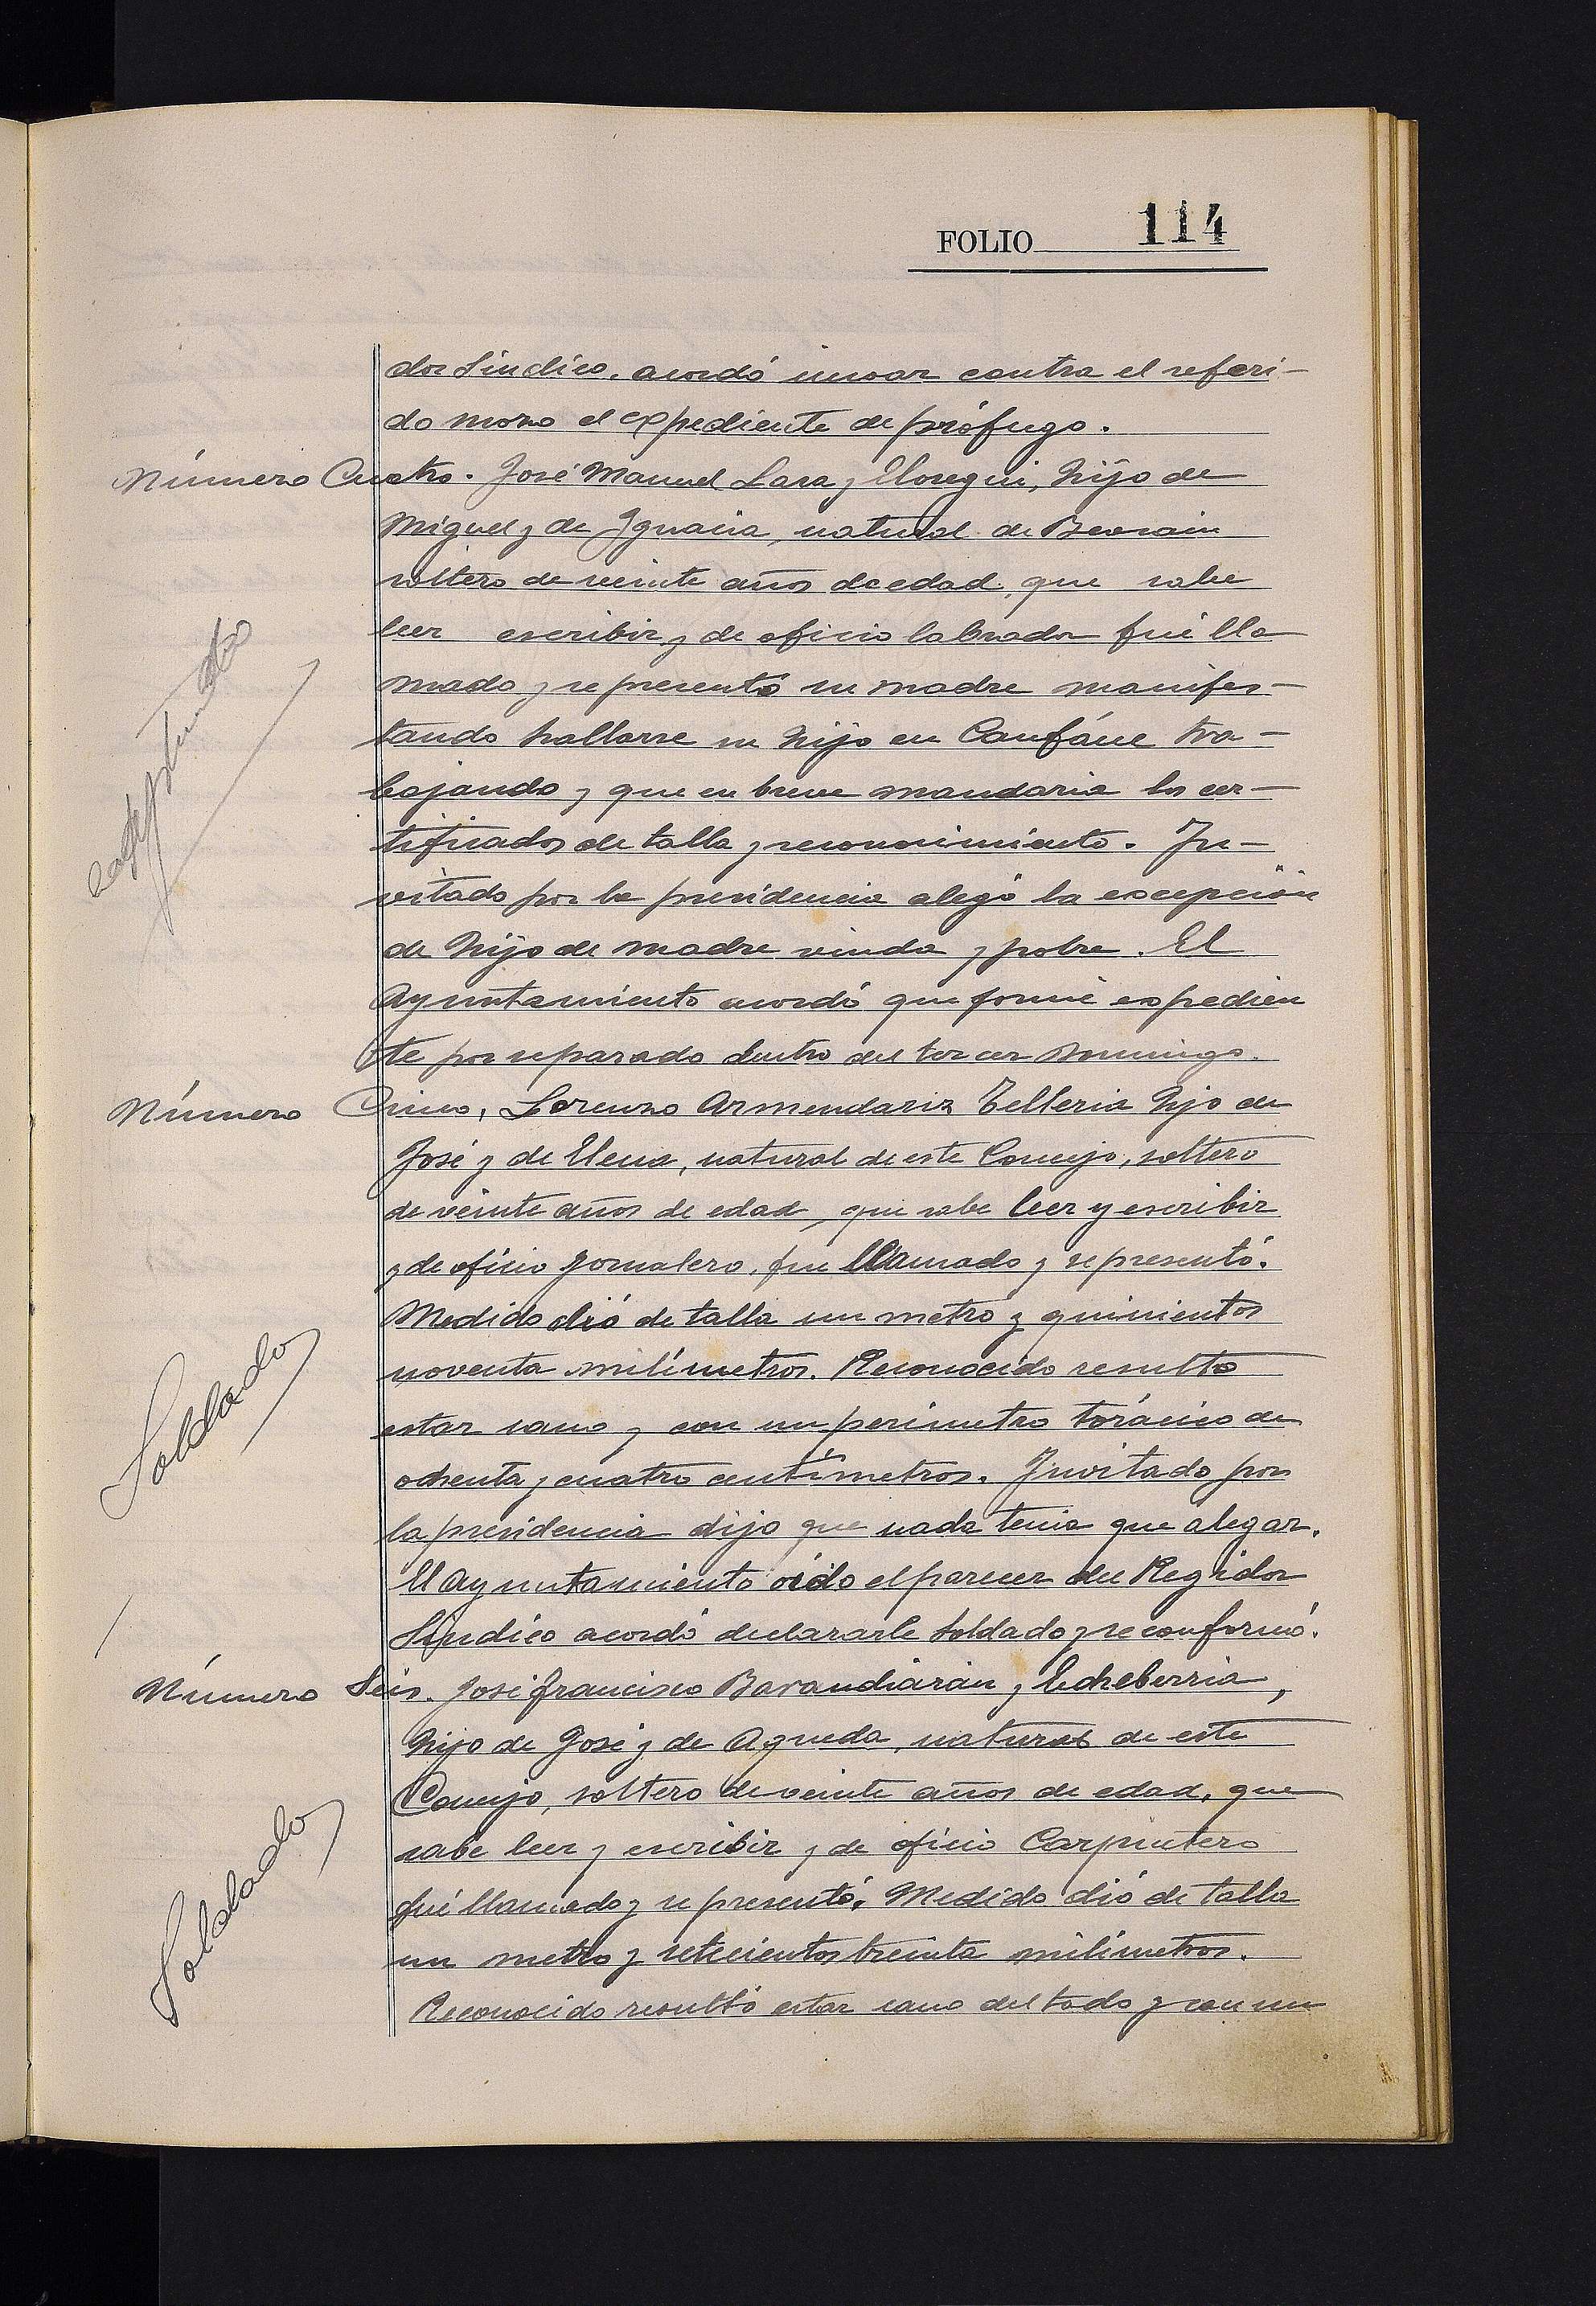 FOLIO 114
dor Síndico, acordó incoar contra el referi-
do mozo el expediente de prófugo.
Número Cuatro. José Manuel Lasa y Elosegui, hijo de
Miguel y de Ignacia, natural de Beasain
soltero de veinte años de edad, que sabe
leer escribir y de oficio labrador fué lla
mado y se presentó su madre manifes-
tando hallarse su hijo en Canfánc tra-
bajando y que en breve mandaria los cer-
tificados de talla y reconocimiento. In-
vitado por la presidencia alegó la excepción
de hijo de madre viuda y pobre. El
Ayuntamiento acordó que forme expedien
te por separado dentro del tercer Domingo.
Número Cinco, Lorenzo Armendariz Telleria hijo de
José y de Elena, natural de este Concejo, soltero
de veinte años de edad, que sabe leer y escribir
y de oficio jornalero, fue llamado y se presentó.
Medido dió de talla un metro y quinientos
noventa milímetros. Reconocido resulto
estar sano y con un perimetro torácico de
ochenta y cuatro centímetros. Invitado por
la presidencia dijo que nada tenia que alegar.
El Ayuntamiento oido el parecer del Regidor
Síndico acordó declararle soldado y se conformó.
Soldado
Número Seis. José francisco Barandiarán y Echeberria,
hijo de José y de Agueda, natural de este
Concejo, soltero de veinte años de edad, que
sabe leer y escribir y de oficio Carpintero
fué llamado y se presentó. Medido dió de talla
un metro y setecientos treinta milímetros.
Reconocido resultó estar sano del todo y con un
Soldado